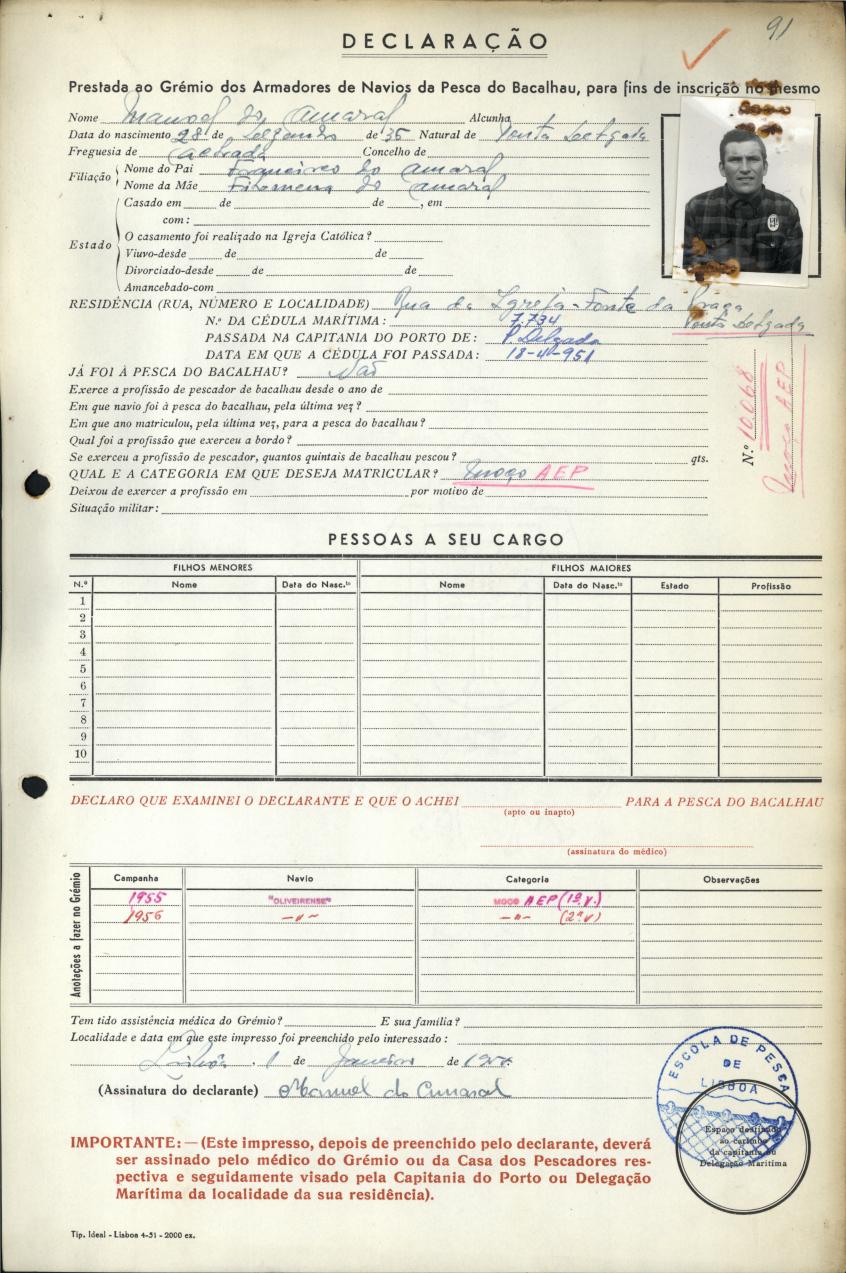 91
DECLARAÇÃO
Prestada ao Grémio dos Armadores de Navios da Pesca do Bacalhau, para fins de inscrição no mesmo
Nome Manuel do Amaral Alcunha
Data do nascimento 28 de de 35 Natural de Ponta Delgada
Freguesia de Concelho de
Filiação
Nome do Pai Francisco do Amaral
Nome da Mãe Filomena do Amaral
Estado
Casado em de de , em
com:
O casamento foi realizado na Igreja Católica?
Viuvo-desde de de
Divorciado-desde de de
Amancebado-com
RESIDÊNCIA (RUA, NÚMERO E LOCALIDADE) Rua da Igreja - Fonte da Graça
Ponta Delgada
N.º DA CÉDULA MARÍTIMA: 7.734
PASSADA NA CAPITANIA DO PORTO DE: P. Delgada
DATA EM QUE A CÉDULA FOI PASSADA: 18-4-951
JÁ FOI À PESCA DO BACALHAU? Não
Exerce a profissão de pescador de bacalhau desde o ano de
Em que navio foi à pesca do bacalhau, pela última vez?
Em que ano matriculou, pela última vez, para a pesca do bacalhau?
Qual foi a profissão que exerceu a bordo?
Se exerceu a profissão de pescador, quantos quintais de bacalhau pescou? qts.
QUAL E A CATEGORIA EM QUE DESEJA MATRICULAR? Moço AEP
Deixou de exercer a profissão em por motivo de
Situação militar:
N.º 10.068
Moço AEP
PESSOAS A SEU CARGO
FILHOS MENORES FILHOS MAIORES
N.º Nome Data do Nasc.to Nome Data do Nasc.to Estado Profissão
1
2
3
4
5
6
7
8
9
10
DECLARO QUE EXAMINEI O DECLARANTE E QUE O ACHEI PARA A PESCA DO BACALHAU
(apto ou inapto)
(assinatura do médico)
Anotações a fazer no Grémio
Campanha Navio Categoria Observações
1955 "OLIVEIRENSE" MOÇO AEP (1ª v.)
1956 -"- -"- (2ª v)
Tem tido assistência médica do Grémio? E sua família?
Localidade e data em que este impresso foi preenchido pelo interessado:
Lisboa, 1 de Janeiro de
(Assinatura do declarante) Manuel do Amaral
ESCOLA DE PESCA
DE
LISBOA
Espaço destinado
ao carimbo
da capitania ou
Delegação Marítima
IMPORTANTE: — (Este impresso, depois de preenchido pelo declarante, deverá
ser assinado pelo médico do Grémio ou da Casa dos Pescadores res-
pectiva e seguidamente visado pela Capitania do Porto ou Delegação
Marítima da localidade da sua residência).
Tip. Ideal - Lisboa 4-51 - 2000 ex.